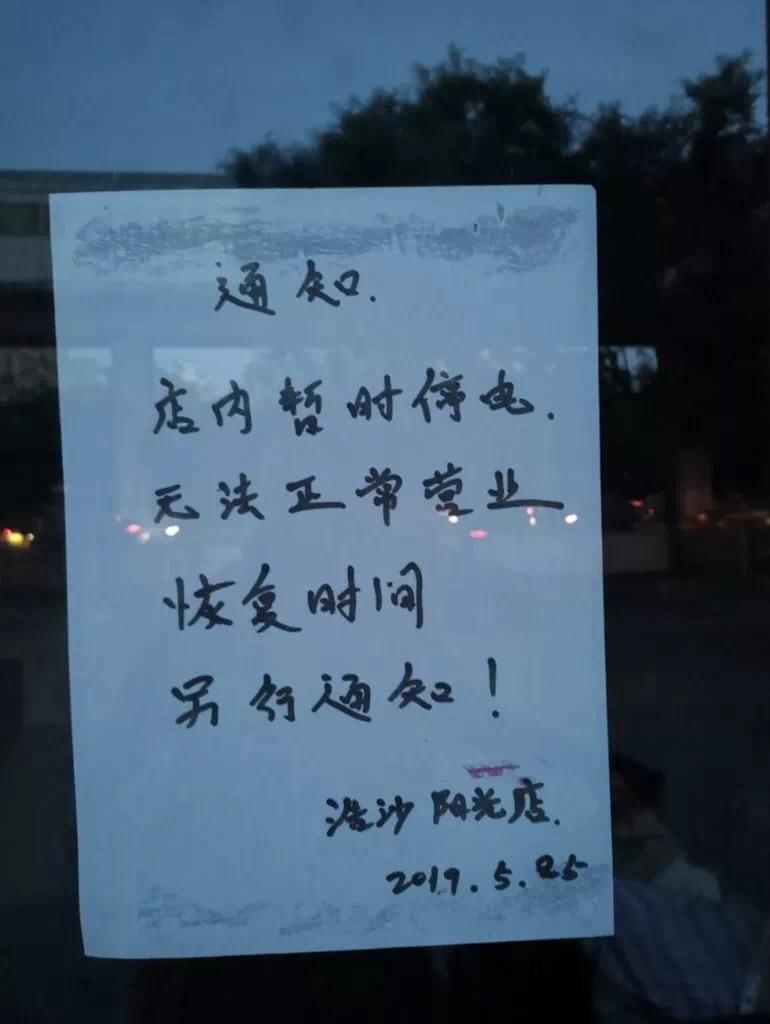 通知.
店内暂时停电.
无法正常营业
恢复时间
另行通知!
浩沙阳光店.
2019.5.25